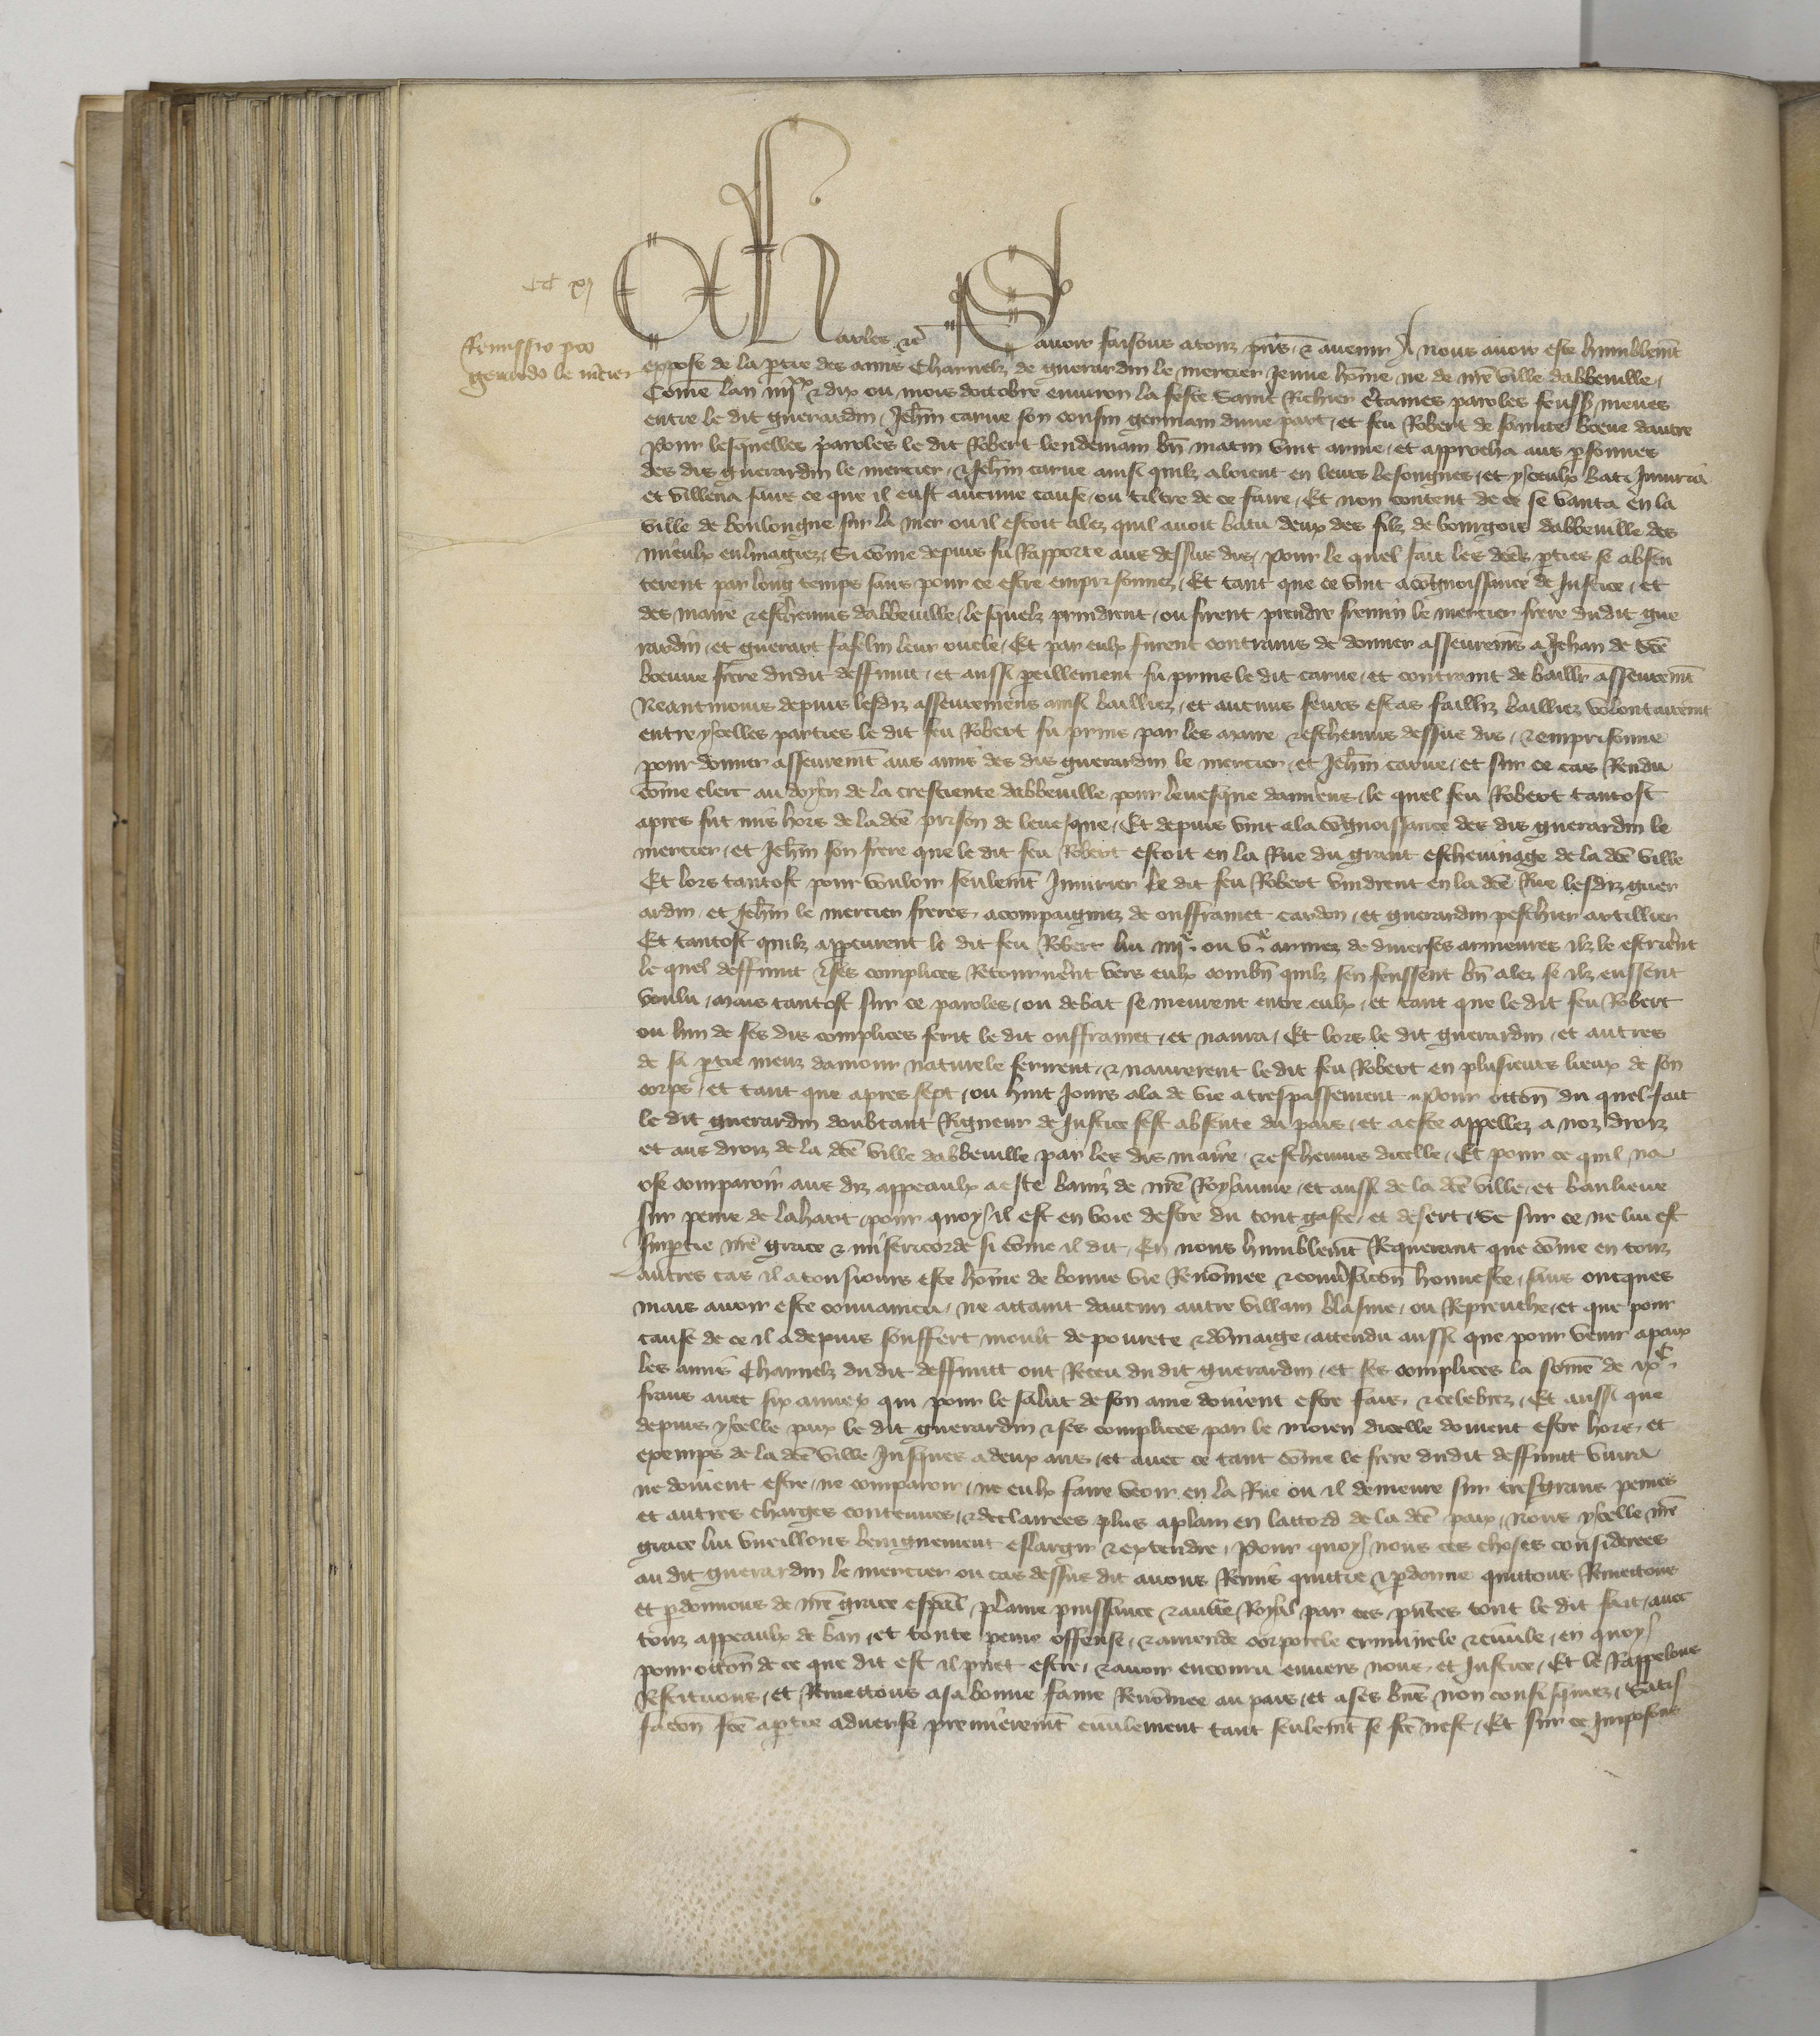 CC xj
Remissio pro
gerardo le mcier
Charles etc Savoir faisons a touz pns & avenir A nous avoir este humblemt
expose de la ptie des amis charnelz de guerardin le mercier jenne home ne de nre ville dabbeville
Come lan iiijxx & dix ou mois doctobre environ la feste saint Richier ctaines paroles feuss meues
entre le dit guerardin Jehin carue son cousin germain dune part et feu Robert de sainte boeue dautre
Pour lesquelles paroles le dit Robert lendemain bn matin vint arme et approcha aus psonnes
des dis guerardin le mercier & Jehin carue ainsi quilz aloient en leurs besongnes et yceulx bati Iniuria
et villena sans ce que il eust aucune cause ou tiltre de ce faire Et non content de ce se vanta en la
ville de boulongne sur la mer ou il estoit alez quil avoit batu deux des filz de bourgois dabbeville des
mieulx enlinagiez Si come depuis fu Rapporte aus dessus dis Pour le quel fait les dces pties se absen
terent par long temps sans pour ce estre emprisonnez Et tant que ce vint a cognoissance de Justice et
des maire & eschevins dabbeville lesquelz prindrent ou firent prendre fremin le mercier frere dudit gue
rardin et guerart faselin leur oncle Et par eulx furent contrains de donner asseuremt a Jehan de sce
boeuue frere dudit deffunct et aussi peillement fu prins le dit carue et contraint de baillr asseuremt
Neantmoins depuis lesdiz asseuremens ainsi bailliez et aucuns seurs estas failliz bailliez volontairemt
entre ycelles parties le dit feu Robert fu prins par les maire & eschevins dessus dis & emprisonne
pour donner asseuremt aus amis des dis guerardin le mercier et Jehin carue et sur ce cas Rendu
come clerc au doyen de la crestiente dabbeville pour levesque damiens le quel feu Robert tantost
apres fut mis hors de ladce prison de levesque Et depuis vint a la cognoissance des dis guerardin le
mercier et Jehin son frere que le dit feu Robert estoit en la Rue du grant eschevinage de la dce ville
Et lors tantost pour vouloir seulemt Iniurier le dit feu Robert vindrent en la dce Rue lesdiz guer
ardin et Jehin le mercier freres acompaignez de onfframet cardon et guerardin peschier artillier
Et tantost quilz appcurent le dit feu Robert lui iiije ou ve armez de diverses armeures ilz le escrieret
le quel deffunct & ses complices Retournerent vers eulx combn quilz sen feussent bn alez se ilz eussent
voulu mais tantost sur ce paroles ou debat se meurent entre eulx et tant que le dit feu Robert
ou lun de ses dis complices ferit le dit onfframet et navra Et lors le dit guerardin et autres
de sa ptie meuz damour naturele ferirent & navrerent le dit feu Robert en plusieurs lieux de son
corps et tant que apres sept ou huit Jours ala de vie a trespassement Pour occon du quel fait
le dit guerardin doubtant Rigueur de Justice sest absente du pais et a este appellez a noz droiz
et aus droiz de la dce ville dabbeville par les dis maire & eschevins dicelle Et pour ce quil na
ose comparoir aus diz appeaulx a este baniz de nre Royaume et aussi de la dce ville et banlieue
sur peine de la hart pour quoy il est en voie destre du tout gaste et desert se sur ce ne lui est
Impartie nre grace & misericorde si come il dit En nous humblemt Requerant que come en touz
autres cas il a tousiours este home de bonne vie Renomee & convsacon honneste sans oncques
mais avoir este convaincu ne attaint daucun autre villain blasme ou Repreuche et que pour
cause de ce il a depuis souffert moult de povrete & domaige attendu aussi que pour venir a paix
les amis charnelz dudit deffunct ont Receu dudit guerardin et ses complices la some de ixc
frans avec six annuez qui pour le salut de son ame doivent estre faiz & celebrez Et aussi que
depuis ycelle paix le dit guerardin & ses complices par le moien dicelle doivent estre hors et
exemps de la dce ville Jusques a deux ans et avec ce tant come le frere dudit deffunct vivra
ne doivent estre ne comparoir ne eulx faire veoir en la Rue ou il demeure sur tresgrans peines
et autres charges contenues & declairees plus a plain en laccord de la dce paix Nous ycelle nre
grace lui vueillons benignement eslargir & extendre Pour quoy nous ces choses considerees
au dit guerardin le mercier ou cas dessus dit avons Remis quittie & pdonne quittons Remettons
et pdonnons de nre grace espal plaine puissance & aucte Royal par ces pntes tout le dit fait avec
touz appeaulx de ban et toute peine offense & amende corporele criminele & civile en quoy
pour occon de ce que dit est il puet estre & avoir encouru envers nous et Justice Et le Rappelons
Restituons et Remettons a sa bonne fame Renomee au pais et a ses bns non confisquiez Satis
facon fce a ptie adverse premieremt civilement tant seulemt se fce nest Et sur ce Imposons